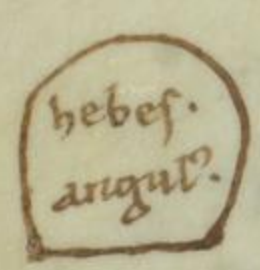 hebeſ.
angulꝰ.